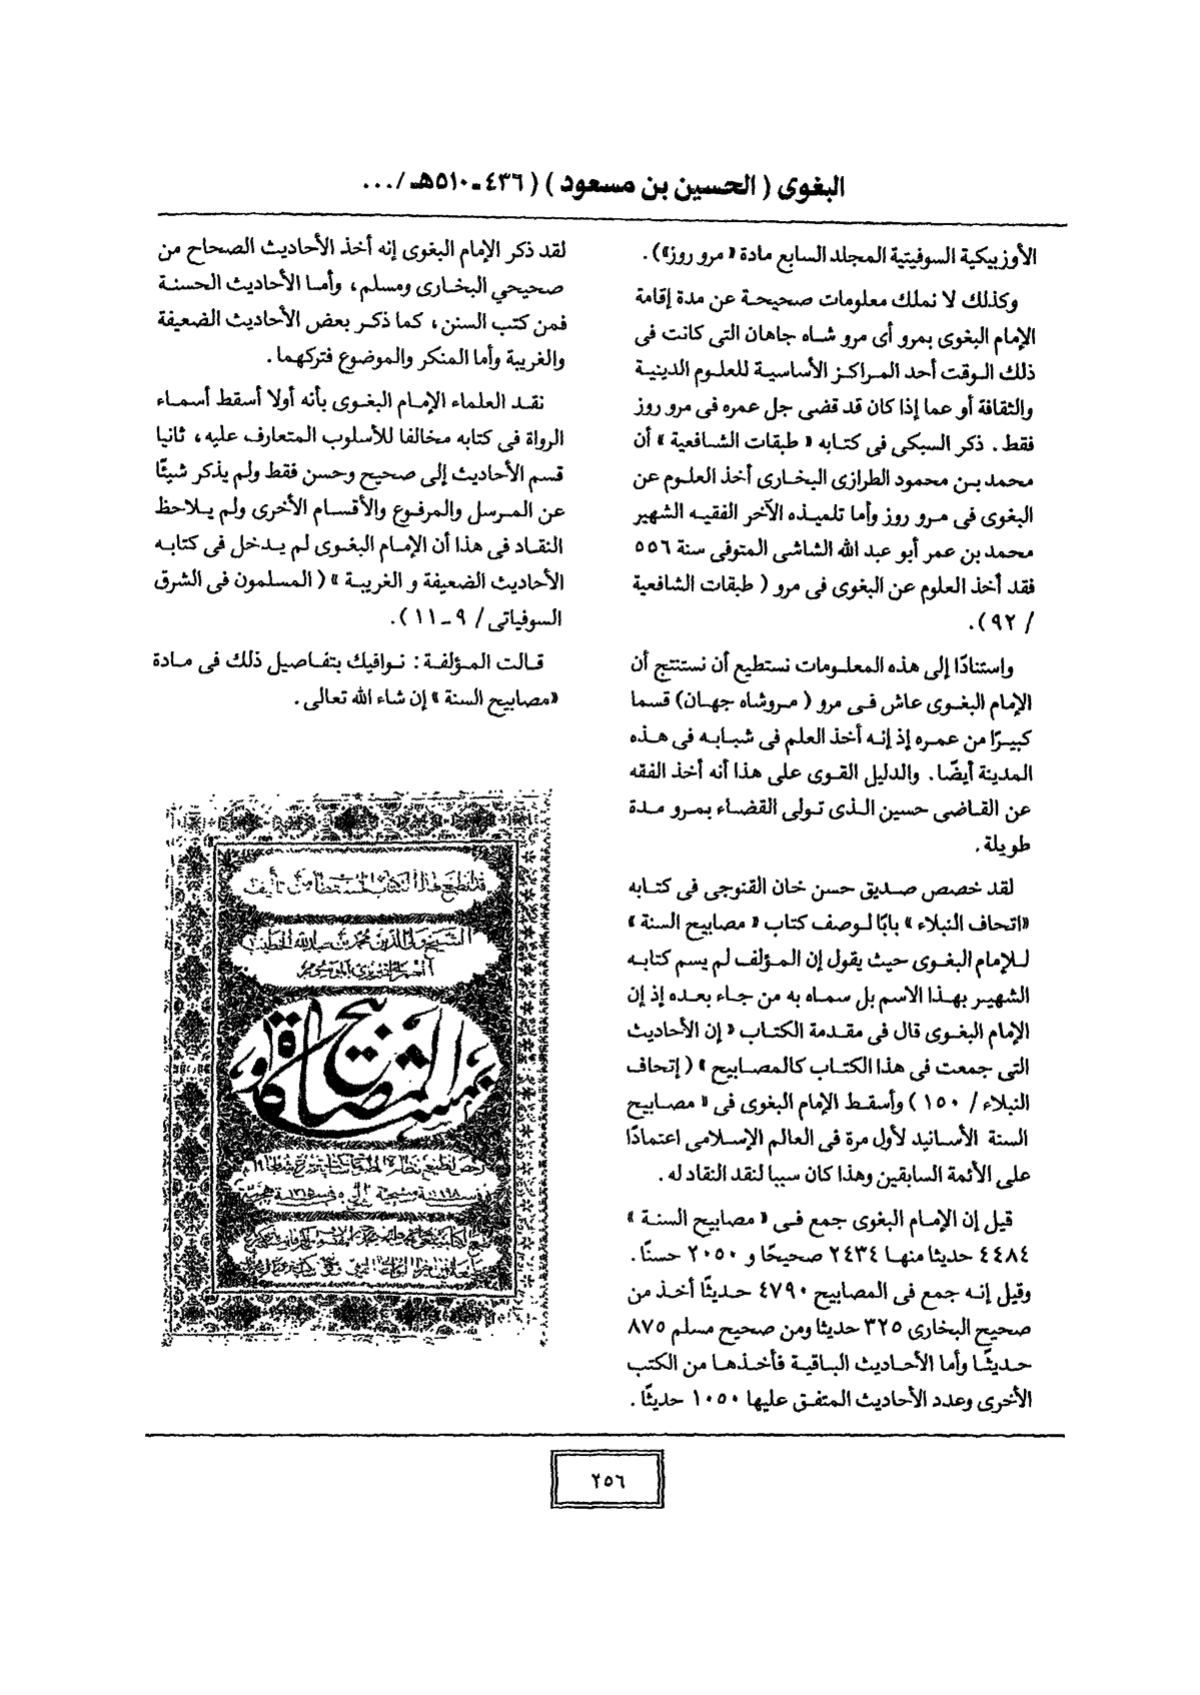 البغوى ( الحسين بن مسعود ) ( ٤٣٦ـ٥١٠هـ / ...
الأوزبيكية السوفيتية المجلد السابع مادة « مرو روز») .
وكذلك لا نملك معلومات صحيحة عن مدة إقامة
الإمام البغوى بمرو أى مرو شاه جاهان التى كانت فى
ذلك الوقت أحد المراكز الأساسية للعلوم الدينية
والثقافة أو عما إذا كان قد قضى جل عمره فى مرو روز
فقط . ذكر السبكى فى كتابه « طبقات الشافعية » أن
محمد بن محمود الطرازى البخارى أخذ العلوم عن
البغوى فى مرو روز وأما تلميذه الآخر الفقيه الشهير
محمد بن عمر أبو عبد الله الشاشى المتوفى سنة ٥٥٦
فقد أخذ العلوم عن البغوى فى مرو ( طبقات الشافعية
/ ٩٢ ) .
واستنادًا إلى هذه المعلومات نستطيع أن نستنتج أن
الإمام البغوى عاش فى مرو ( مروشاه جهان) قسما
كبيرًا من عمره إذ إنه أخذ العلم فى شبابه فى هذه
المدينة أيضًا . والدليل القوى على هذا أنه أخذ الفقه
عن القاضى حسين الذى تولى القضاء بمرو مدة
طويلة .
لقد خصص صديق حسن خان القنوجى فى كتابه
«اتحاف النبلاء » بابًا لوصف كتاب « مصابيح السنة »
للإمام البغوى حيث يقول إن المؤلف لم يسم كتابه
الشهير بهذا الاسم بل سماه به من جاء بعده إذ إن
الإمام البغوى قال فى مقدمة الكتاب « إن الأحاديث
التى جمعت فى هذا الكتاب كالمصابيح » ( إتحاف
النبلاء / ١٥٠ ) وأسقط الإمام البغوى فى « مصابيح
السنة الأسانيد لأول مرة فى العالم الإسلامى اعتمادًا
على الأئمة السابقين وهذا كان سببا لنقد النقاد له .
قيل إن الإمام البغوى جمع فى « مصابيح السنة »
٤٤٨٤ حديثا منها ٢٤٣٤ صحيحًا و ٢٠٥٠ حسنًا .
وقيل إنه جمع فى المصابيح ٤٧٩٠ حديثًا أخذ من
صحيح البخارى ٣٢٥ حديثا ومن صحيح مسلم ٨٧٥
حديثًا وأما الأحاديث الباقية فأخذها من الكتب
الأخرى وعدد الأحاديث المتفق عليها ١٠٥٠ حديثًا .
لقد ذكر الإمام البغوى إنه أخذ الأحاديث الصحاح من
صحيحي البخارى ومسلم ، وأما الأحاديث الحسنة
فمن كتب السنن ، كما ذكر بعض الأحاديث الضعيفة
والغريبة وأما المنكر والموضوع فتركهما .
نقد العلماء الإمام البغوى بأنه أولا أسقط أسماء
الرواة فى كتابه مخالفا للأسلوب المتعارف عليه ، ثانيا
قسم الأحاديث إلى صحيح وحسن فقط ولم يذكر شيئًا
عن المرسل والمرفوع والأقسام الأخرى ولم يلاحظ
النقاد فى هذا أن الإمام البغوى لم يدخل فى كتابه
الأحاديث الضعيفة و الغريبة » ( المسلمون فى الشرق
السوفياتى / ٩ ـ ١١ ) .
قالت المؤلفة : نوافيك بتفاصيل ذلك فى مادة
«مصابيح السنة » إن شاء الله تعالى .
الشيخ ولى الدين محمد بن عبد الله الخطيب
مشكاة المصابيح
٢٥٦